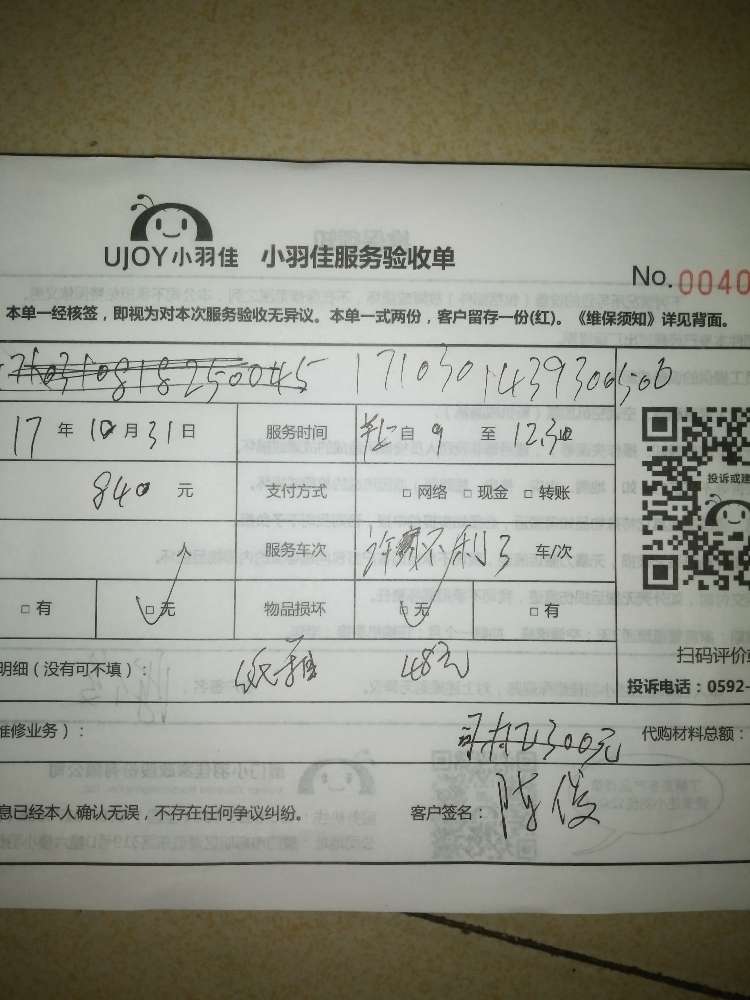 UJOY小羽佳 小羽佳服务验收单
No.0040
本单一经核签，即视为对本次服务验收无异议。本单一式两份，客户留存一份(红)。《维保须知》详见背面。
17 年 10 月 31 日 服务时间 自 9 至 12.30
投诉或建
840 元 支付方式 □ 网络 □ 现金 □ 转账
人 服务车次 车/次
□ 有 □ 无 物品损坏 □ 无 □ 有
扫码评价
明细（没有可不填）： 纸箱 48元
投诉电话：0592-
维修业务）： 2300元 代购材料总额：
息已经本人确认无误，不存在任何争议纠纷。 客户签名： 陈俊